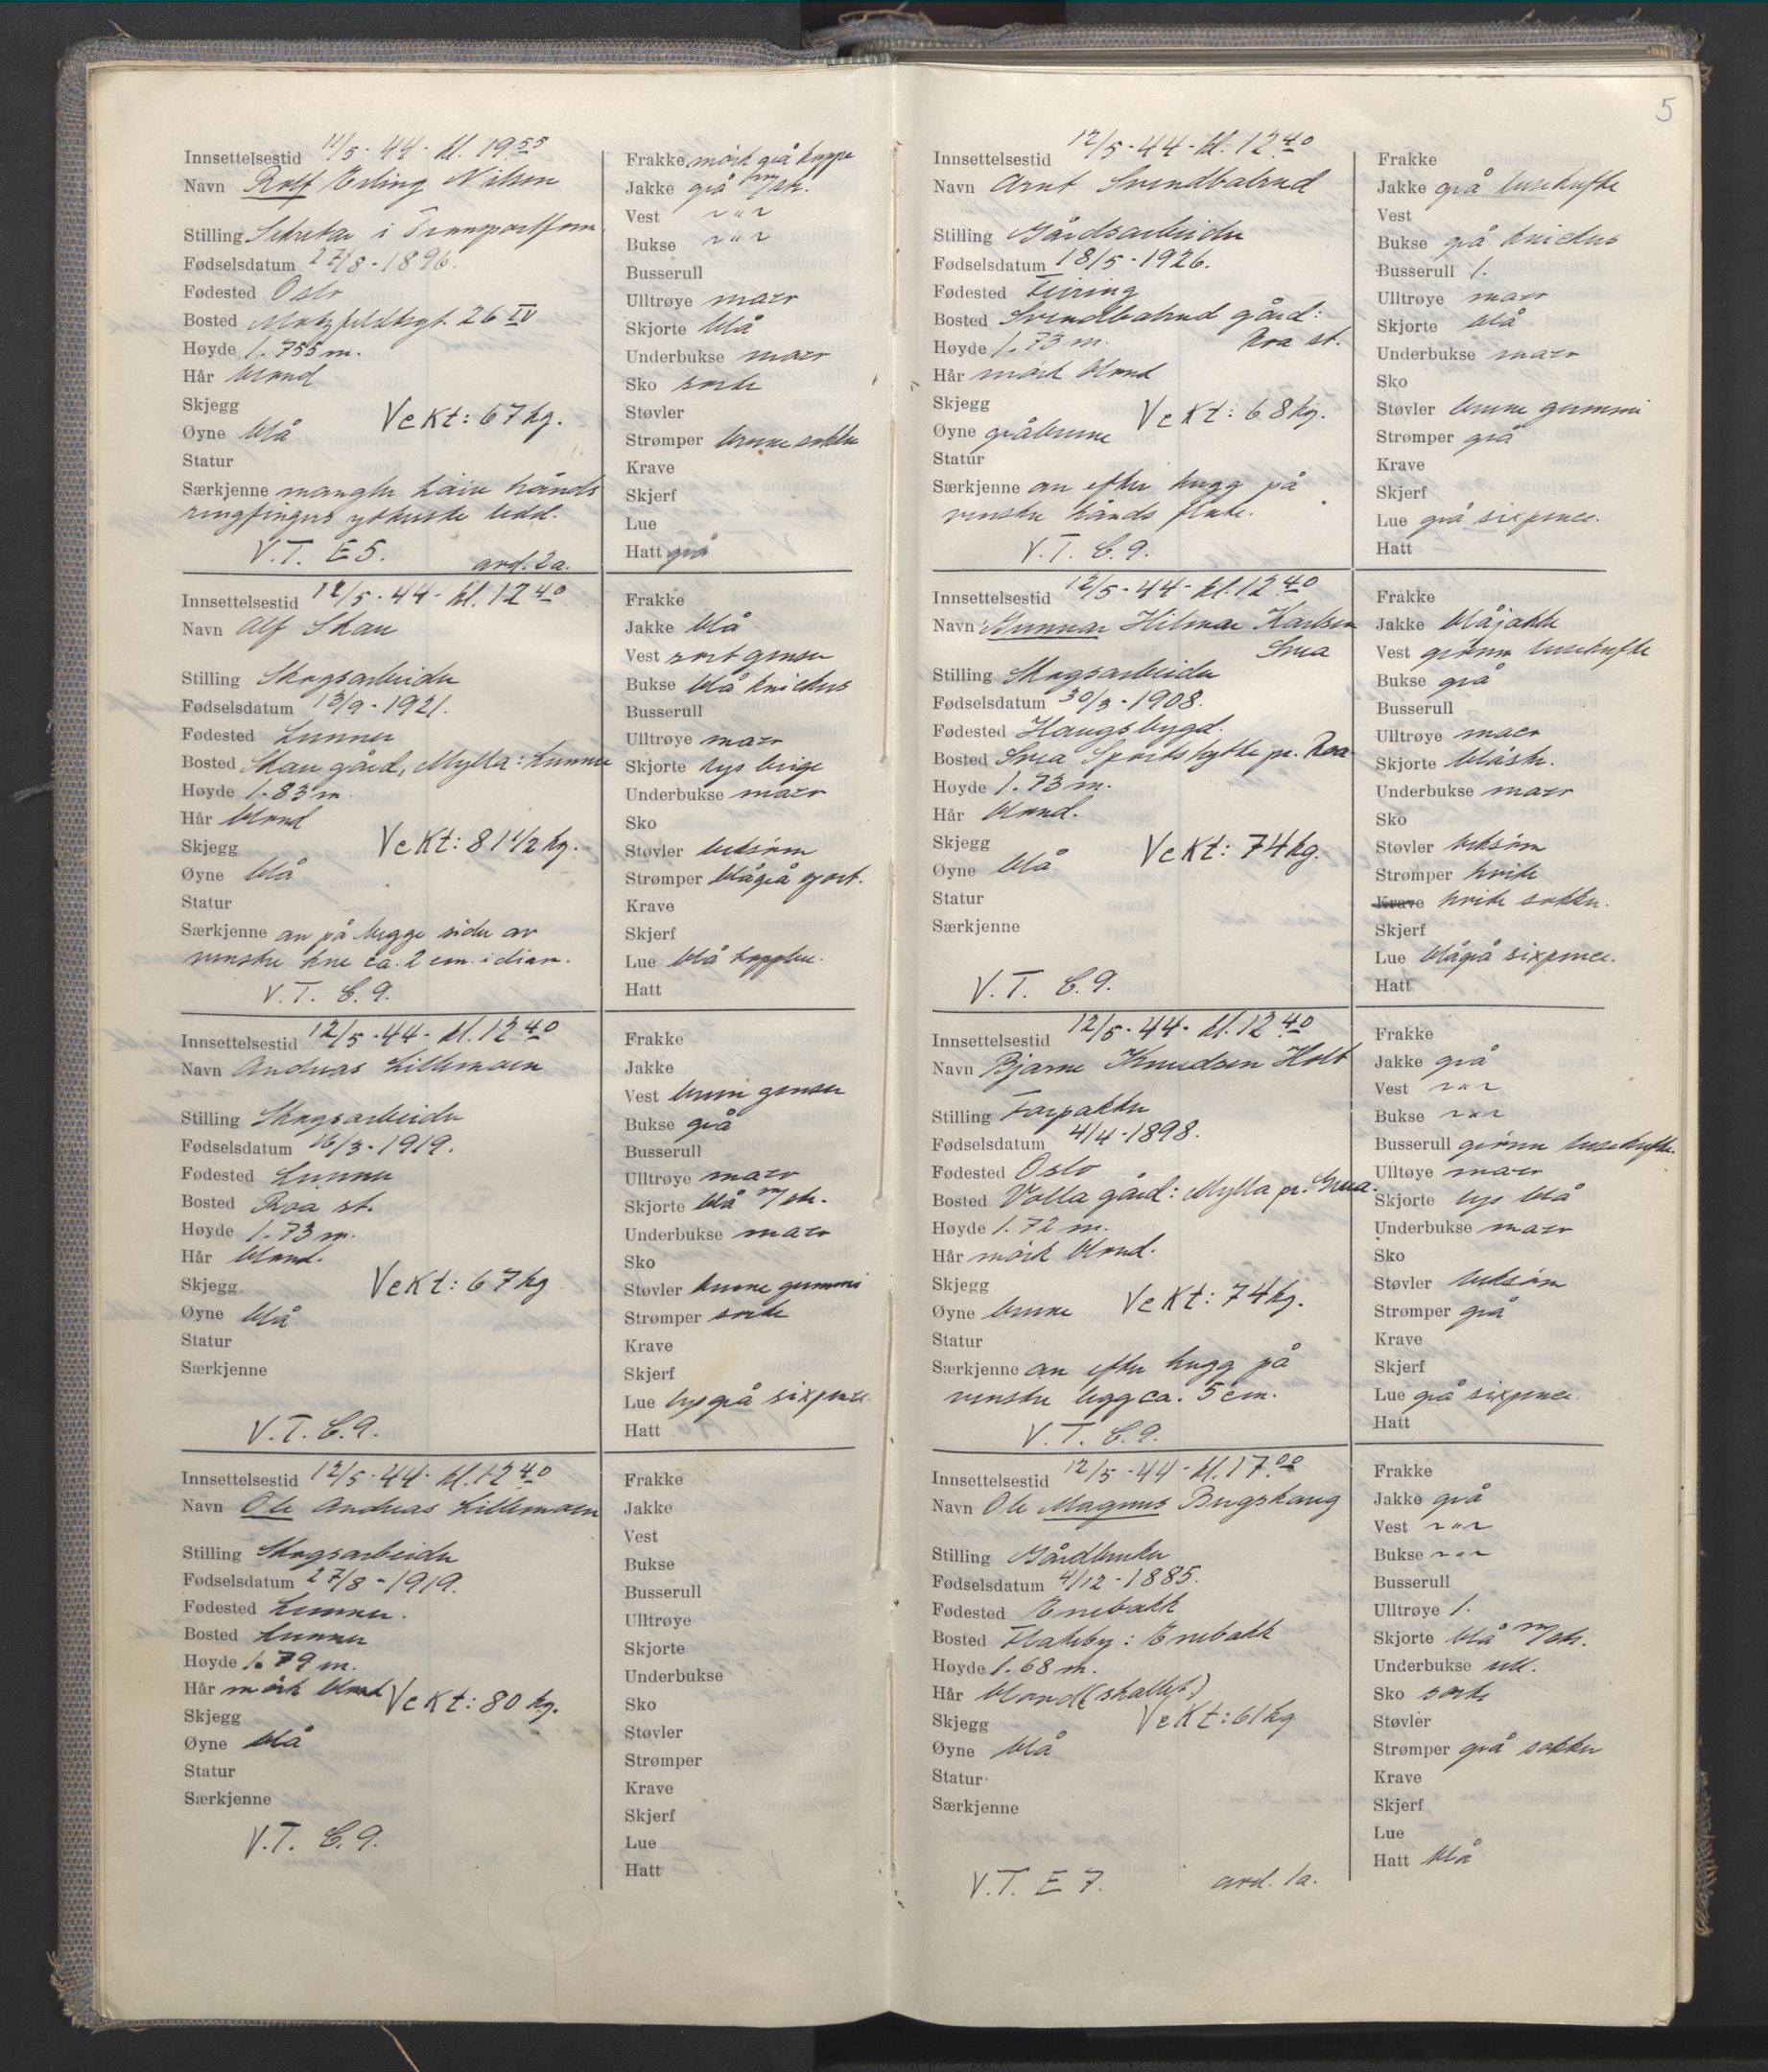 5
Innsettelsestid 11/5-44- kl. 19.55
Navn Rolf Erling Nilsen
Stilling Sekretær i Transportform.
Fødselsdatum 27/8-1896.
Fødested Oslo
Bosted Motzfeldtsgt. 26 IV
Høyde 1.755 m.
Hår blond
Skjegg
Vekt: 67 kg.
Øyne blå
Statur
Særkjenne mangler høire hånds
ringfingers ytterste ledd.
V.T. E 5. avd. 2a.
Frakke mørk grå kappe
Jakke grå m/str.
Vest " "
Bukse " "
Busserull
Ulltrøye maco
Skjorte blå
Underbukse maco
Sko sorte
Støvler
Strømper brune sokker
Krave
Skjerf
Lue
Hatt grå
Innsettelsestid 12/5-44- kl. 12.40
Navn Alf Skau
Stilling Skogsarbeider
Fødselsdatum 13/9-1921.
Fødested Lunner
Bosted Skau gård, Mylla: Lunner
Høyde 1.83 m.
Hår blond
Skjegg
Vekt: 81 1/2 kg.
Øyne blå
Statur
Særkjenne arr på begge sider av
venstre kne ca. 2 cm. i diam.
V.T. C. 9.
Frakke
Jakke blå
Vest sort genser
Bukse blå knickers
Busserull
Ulltrøye maco
Skjorte lys beige
Underbukse maco
Sko
Støvler beksøm
Strømper blågrå sport.
Krave
Skjerf
Lue blå topplue.
Hatt
Innsettelsestid 12/5-44- kl. 12.40
Navn Andreas Lillemoen
Stilling Skogsarbeider
Fødselsdatum 16/3-1919.
Fødested Lunner
Bosted Roa st.
Høyde 1.73 m.
Hår blond.
Skjegg
Vekt: 67 kg
Øyne blå
Statur
Særkjenne
V.T. C. 9.
Frakke
Jakke
Vest brun genser
Bukse grå
Busserull
Ulltrøye maco
Skjorte blå m/str.
Underbukse maco
Sko
Støvler brune gummi
Strømper sorte
Krave
Skjerf
Lue lysgrå sixpence
Hatt
Innsettelsestid 12/5-44- kl. 12.40
Navn Ole Andreas Lillemoen
Stilling Skogsarbeider
Fødselsdatum 27/8-1919.
Fødested Lunner.
Bosted Lunner
Høyde 1.79 m.
Hår mørk blond
Vekt: 80 kg.
Skjegg
Øyne blå
Statur
Særkjenne
V.T. C. 9.
Frakke
Jakke
Vest
Bukse
Busserull
Ulltrøye
Skjorte
Underbukse
Sko
Støvler
Strømper
Krave
Skjerf
Lue
Hatt
Innsettelsestid 12/5-44- kl. 12.40
Navn Arnt Svendbalrud
Stilling Gårdsarbeider
Fødselsdatum 18/5-1926.
Fødested Feiring
Bosted Svendbalrud gård:
Roa st.
Høyde 1.73 m.
Hår mørk blond
Skjegg
Vekt: 68 kg.
Øyne gråbrune
Statur
Særkjenne arr efter hugg på
venstre hånds flate.
V.T. C. 9.
Frakke
Jakke grå lusekufte
Vest
Bukse grå knickers
Busserull 1.
Ulltrøye maco
Skjorte blå
Underbukse maco
Sko
Støvler brune gummi
Strømper grå
Krave
Skjerf
Lue grå sixpence.
Hatt
Innsettelsestid 12/5-44- kl. 12.40
Navn Gunnar Hilmar Karlsen
Snea
Stilling Skogsarbeider
Fødselsdatum 30/3-1908.
Fødested Haugsbygd.
Bosted Snea Sportshytte pr. Roa
Høyde 1.73 m.
Hår blond.
Skjegg
Vekt: 74 kg.
Øyne blå
Statur
Særkjenne
V.T. C. 9.
Frakke
Jakke blåjakke
Vest grønn lusekufte
Bukse grå
Busserull
Ulltrøye maco
Skjorte blåstr.
Underbukse maco
Sko
Støvler beksøm
Strømper hvite
Krave hvite sokker.
Skjerf
Lue blågrå sixpence.
Hatt
Innsettelsestid 12/5-44- kl. 12.40
Navn Bjarne Knudsen Holt
Stilling Forpakter
Fødselsdatum 4/4-1898.
Fødested Oslo
Bosted Volla gård: Mylla pr. Grua.
Høyde 1.72 m.
Hår mørk blond.
Skjegg
Øyne brune Vekt: 74 kg.
Statur
Særkjenne arr efter hugg på
venstre legg ca. 5 cm.
V.T. C. 9.
Frakke
Jakke grå
Vest " "
Bukse " "
Busserull grønn lusekufte.
Ulltøye maco
Skjorte lys blå
Underbukse maco
Sko
Støvler beksøm
Strømper grå
Krave
Skjerf
Lue grå sixpence.
Hatt
Innsettelsestid 12/5-44- kl. 17.00
Navn Ole Magnus Bugskaug
Stilling Gårdbruker
Fødselsdatum 4/12-1885.
Fødested Enebakk
Bosted Flateby: Enebakk
Høyde 1.68 m.
Hår blond (skallet.)
Skjegg
Vekt: 61 kg
Øyne blå
Statur
Særkjenne
V.T. E 7. avd. 1a.
Frakke
Jakke grå
Vest " "
Bukse " "
Busserull
Ulltrøye 1.
Skjorte blå m/str.
Underbukse ull.
Sko sorte
Støvler
Strømper grå sokker
Krave
Skjerf
Lue
Hatt blå